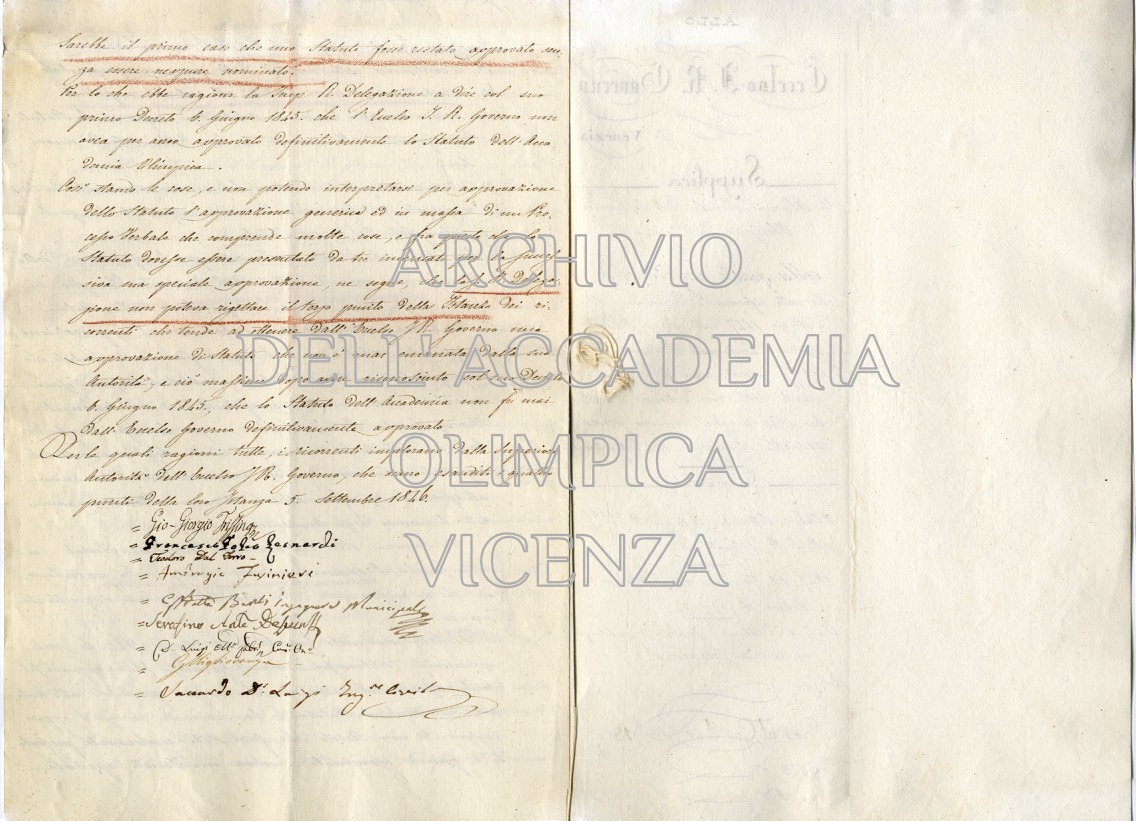 Sarebbe il primo caso che uno Statuto fosse restato approvato sen-
za essere neppure nominato.
Per lo che ebbe ragione la Sup. R. Delegazione a dire col suo
primo Decreto 6. Giugno 1845. che l'Eccelso I. R. Governo non
avea per anco approvato definitivamente lo Statuto dell'Acca
demia Olimpica.
Così stando le cose, e non potendo interpretarsi per approvazione
dello Statuto l'approvazione generica ed in massa di un Pro-
cesso Verbale che comprende molte cose, e fra queste che lo
Statuto dovesse essere presentato da tre incaricati per la succes
siva ma speciale approvazione, ne segue, che la R. Delega-
zione non poteva rigettare il terzo punto della Istanza dei ri-
correnti che tende ad ottenere dall'Eccelso I. R. Governo una
approvazione di Statuto che non è mai emanata dalla sua
Autorità, e ciò massime dopo aver riconosciuto col suo Decreto
6. Giugno 1845. che lo Statuto dell'Accademia non fu mai
dall'Eccelso Governo definitivamente approvato.
Per le quali ragioni tutte, i ricorrenti implorano dalla Superiore
Autorità dell'Eccelso I. R. Governo, che siano esauditi i quattro
punti della loro Istanza 5. Settembre 1846.
= Gio-Giorgio Trissino
= Francesco Bernardi
= Teodoro Dal Ferro
= Ambrogio
= Bartolo Ingegnere Municipale
= Serafino Ant.
= D. Luigi
=
= Saccardo Dr. Luigi Ing.re Civile
ARCHIVIO
DELL'ACCADEMIA
OLIMPICA
VICENZA
Eccelso I. R. Governo
Venezia
Supplica